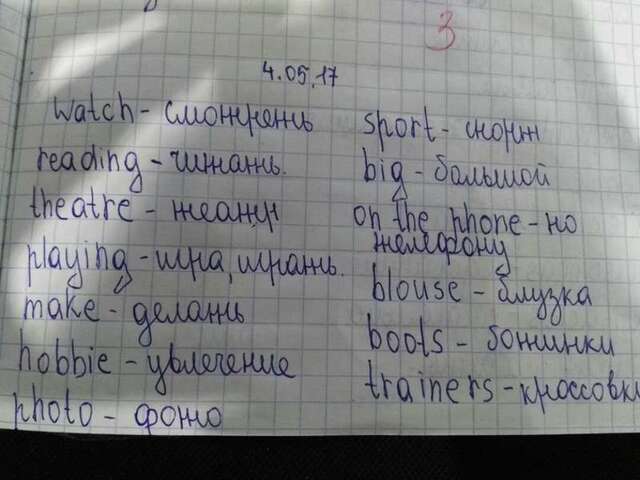 3
4.05.17
watch - смотреть
reading - читать.
theatre - театр
playing - игра, играть.
make - делать
hobbie - увлечение
photo - фото
sport - спорт
big - большой
on the phone - по
телефону
blouse - блузка
boots - ботинки
trainers - кроссовки